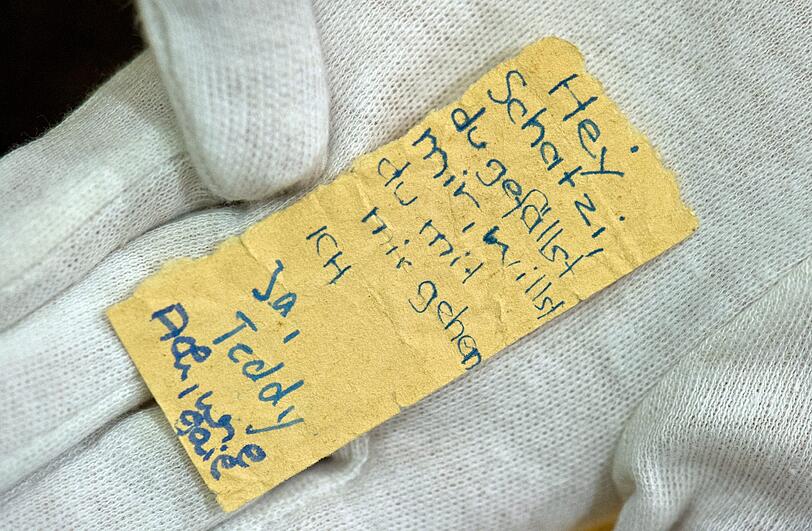 Hey.
Schatz!
du gefällst
mir, willst
du mit
mir gehen
ICH
Ja,
Teddy